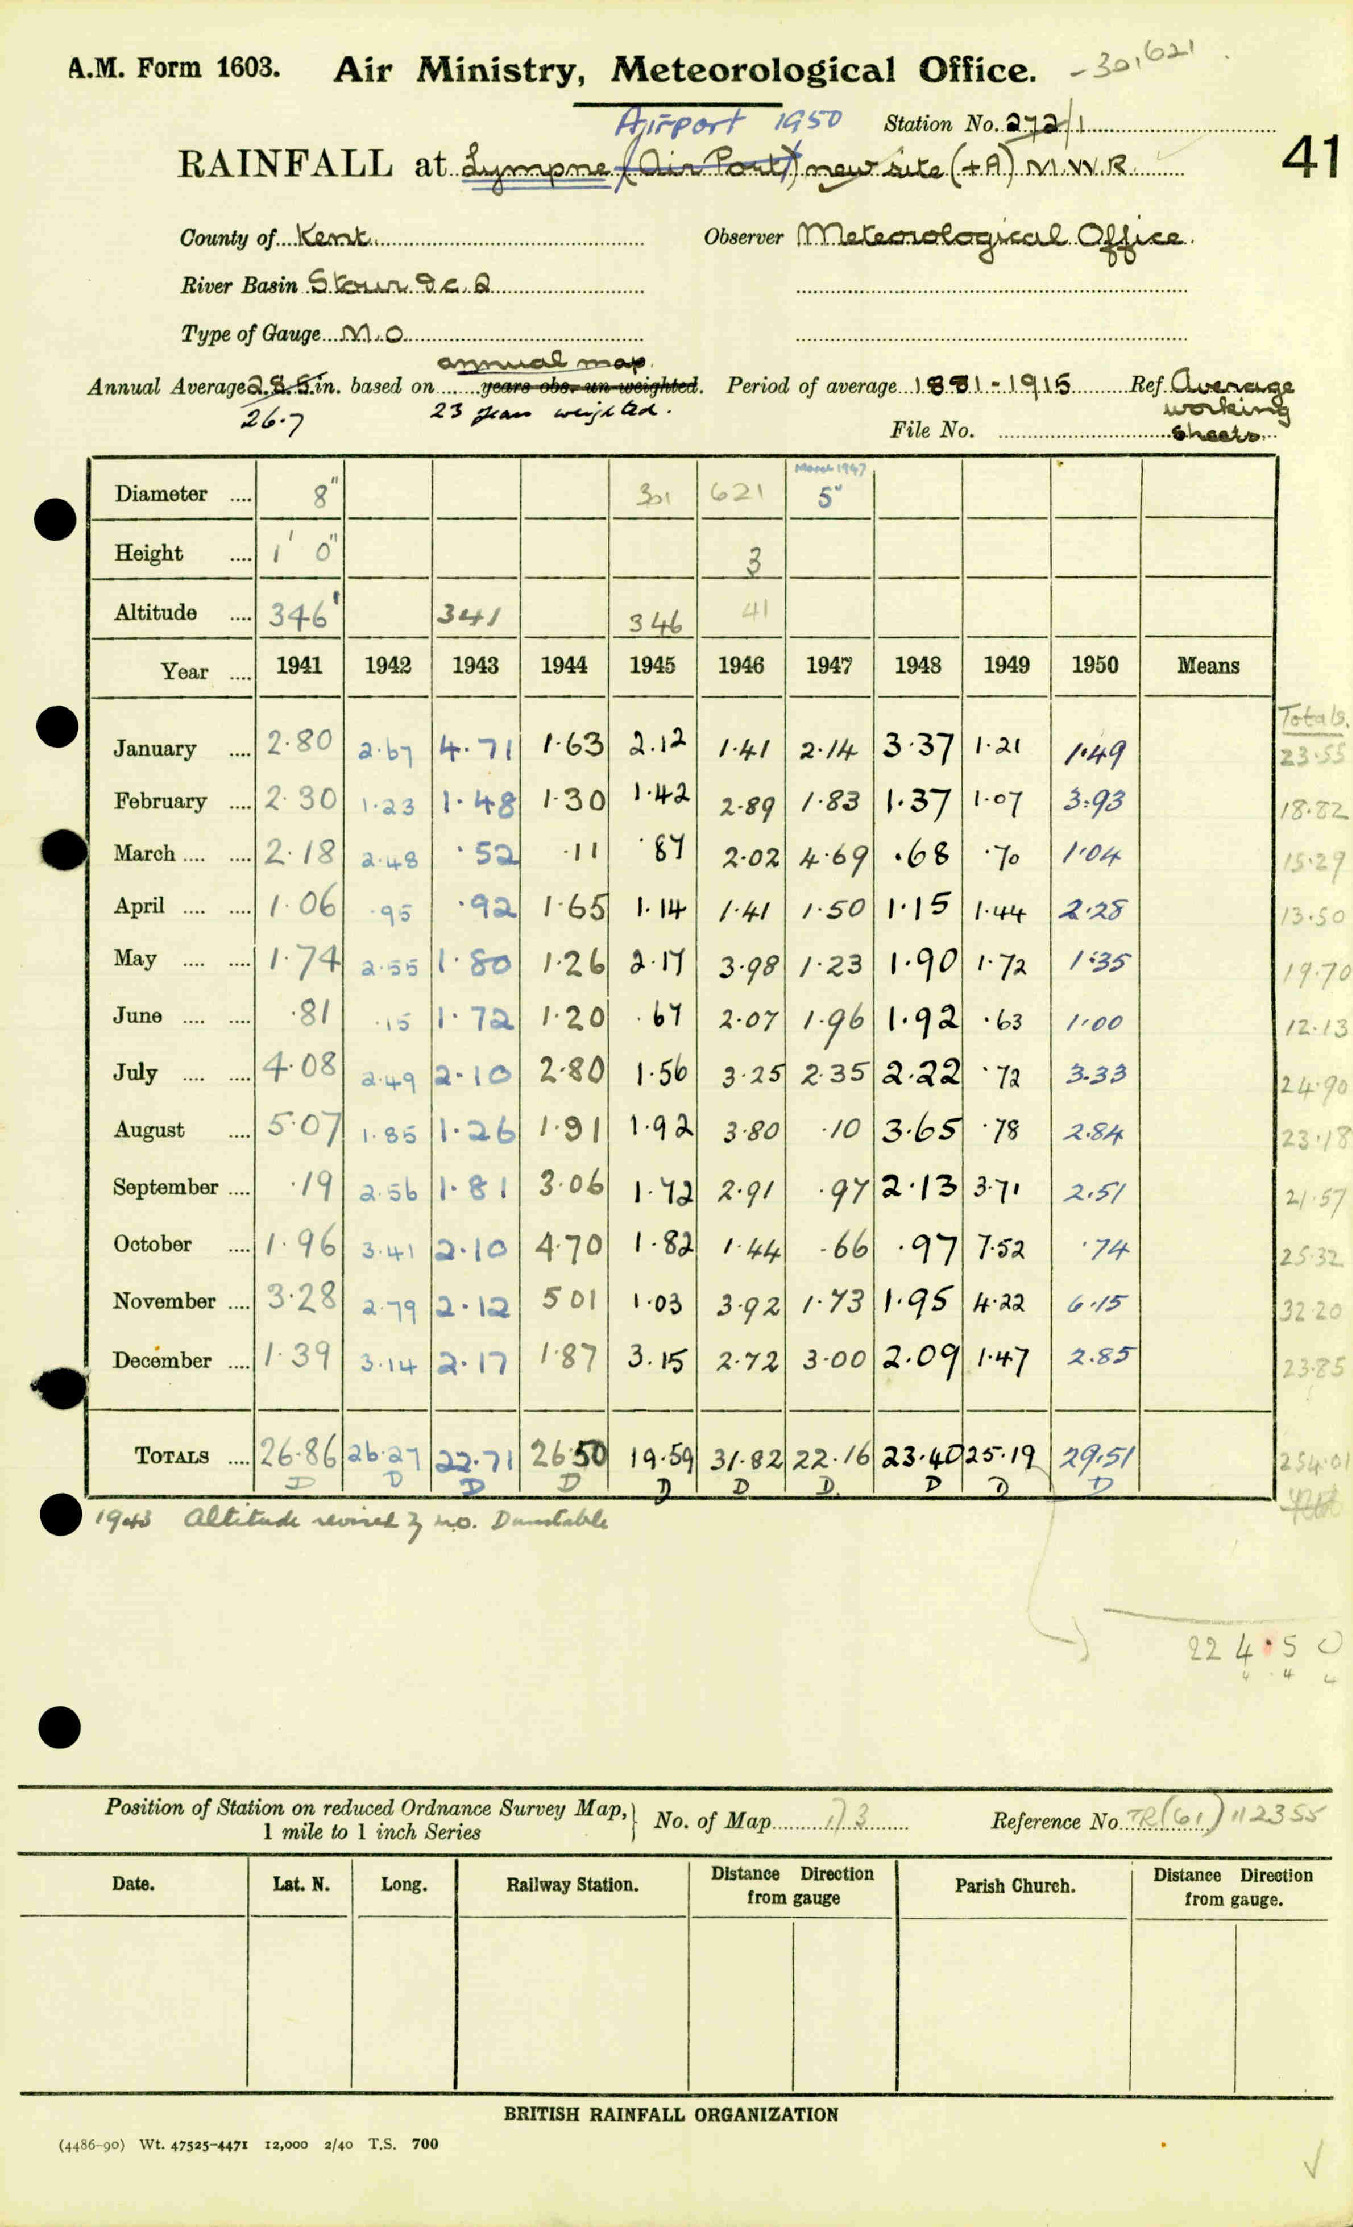 A.M. Form 1603. Air Ministry, Meteorological Office. -30,621
Airport 1950 Station No. 272/1
RAINFALL at Lympne (Air Port) new site (+A) M.W.R. 41
County of Kent Observer Meteorological Office
River Basin Stour &c. 2
Type of Gauge M.O.
annual map.
Annual Average 28.5 in. based on years obs. un-weighted. Period of average 1881-1915 Ref. Average
26.7 23 years weighted. working
File No. sheets
March 1947
Diameter 8" 301 621 5"
Height 1' 0" 3
Altitude 346' 341 346 41
Year 1941 1942 1943 1944 1945 1946 1947 1948 1949 1950 Means
Totals.
January 2.80 2.67 4.71 1.63 2.12 1.41 2.14 3.37 1.21 1.49 23.55
February 2.30 1.23 1.48 1.30 1.42 2.89 1.83 1.37 1.07 3.93 18.82
March 2.18 2.48 .52 .11 .87 2.02 4.69 .68 .70 1.04 15.29
April 1.06 .95 .92 1.65 1.14 1.41 1.50 1.15 1.44 2.28 13.50
May 1.74 2.55 1.80 1.26 2.17 3.98 1.23 1.90 1.72 1.35 19.70
June .81 .15 1.72 1.20 .67 2.07 1.96 1.92 .63 1.00 12.13
July 4.08 2.49 2.10 2.80 1.56 3.25 2.35 2.22 .72 3.33 24.90
August 5.07 1.85 1.26 1.91 1.92 3.80 .10 3.65 .78 2.84 23.18
September .19 2.56 1.81 3.06 1.72 2.91 .97 2.13 3.71 2.51 21.57
October 1.96 3.41 2.10 4.70 1.82 1.44 .66 .97 7.52 .74 25.32
November 3.28 2.79 2.12 5.01 1.03 3.92 1.73 1.95 4.22 6.15 32.20
December 1.39 3.14 2.17 1.87 3.15 2.72 3.00 2.09 1.47 2.85 23.85
TOTALS 26.86 26.27 22.71 26.50 19.59 31.82 22.16 23.40 25.19 29.51 254.01
D D D D D D D. D D D
1943 Altitude revised by M.O. Dunstable
224.50
4 4 4
Position of Station on reduced Ordnance Survey Map, 1 mile to 1 inch Series No. of Map 173 Reference No. TR(61) 112355
Date. Lat. N. Long. Railway Station. Distance Direction from gauge Parish Church. Distance Direction from gauge.
BRITISH RAINFALL ORGANIZATION
(4486-90) Wt. 47525-4471 12,000 2/40 T.S. 700